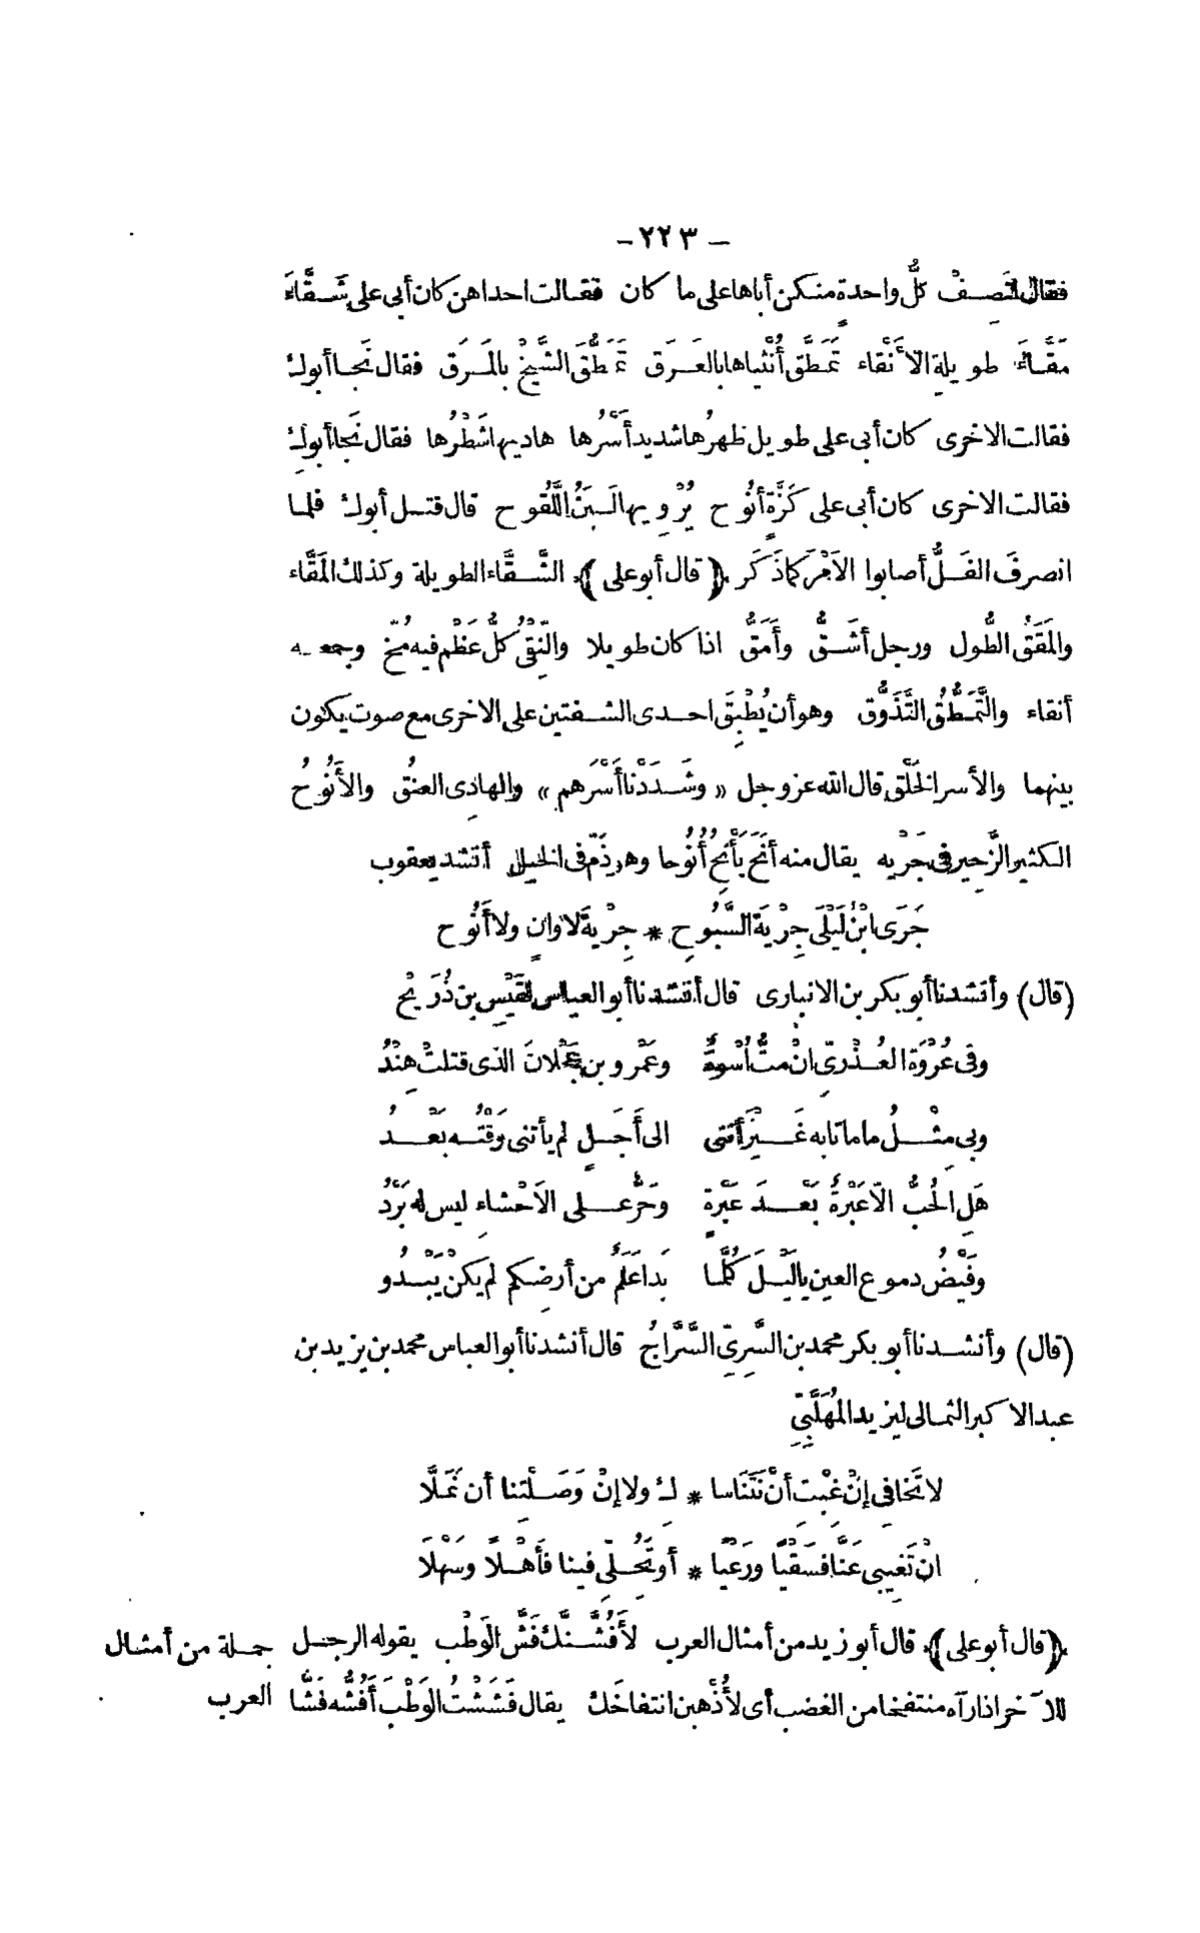 - ٢٢٣ -
فقال لتصفْ كلُّ واحدةٍ منكن أباها على ما كان فقالت احداهن كان أبى على شَقَّاءَ
مَقَّاءَ طويلةِ الأَنْقاء تَمَطَّق أُنْثياها بالعَرَق تَمَطُّقَ الشَّيْخِ بالمَرَق فقال نَجا أبوك
فقالت الاخرى كان أبى على طويل ظهرُها شديد أَسْرُها هاديها شَطْرُها فقال نَجا أبوكِ
فقالت الاخرى كان أبى على كَزَّةٍ أَنُوح يُرْويها لَبَنُ اللَّقُوح قال قتل أبوك فلما
انصرفَ الفَلُّ أصابوا الاَمْرَ كما ذَكَر ﴿ قال أبو على ﴾ الشَّقَّاء الطويلة وكذلك المَقَّاء
والمَقَقُ الطُّول ورجل أَشَقُّ وأَمَقُّ اذا كان طويلا والنِّقْىُ كلُّ عَظْمٍ فيه مُخّ وجمعه
أنقاء والتَّمَطُّقُ التَّذَوُّق وهو أن يُطْبِقَ احدى الشفتين على الاخرى مع صوت يكون
بينهما والأسر الخَلْق قال الله عز وجل « وشَدَدْنا أَسْرَهم » والهادِى العنُق والأَنُوحُ
الكثير الزَّحِير فى جَرْيِه يقال منه أَنَحَ يَأْنِحُ أُنُوحا وهو ذَمّ فى الخيل أنشد يعقوب
جَرَى ابْنُ لَيْلَى جِرْيَةَ السَّبُوحِ * جِرْيةَ لا وانٍ ولا أَنُوح
(قال) وأنشدنا أبو بكر بن الانبارى قال أنشدنا أبو العباس لقَيْسِ بن ذُرَيْح
وفى عُرْوَةَ العُذْرِىّ انْ متُّ أُسْوةٌ وعَمْرو بن عَجْلانَ الذى قتلتْ هِنْدُ
وبِى مِثْلُ ما ماتا به غَيْرَ أننى الى أَجَلٍ لم يأتنى وَقْتُه بَعْدُ
هَلِ الحُبُّ الّا عَبْرةٌ بَعْدَ عَبْرةٍ وحَرٌّ على الاَحْشاءِ ليس له بَرْدُ
وفَيْضُ دموع العين يالَيْلَ كُلَّما بَدا عَلَمٌ من أرضِكم لم يكن يَبْدُو
(قال) وأنشدنا أبو بكر محمد بن السَّرِىِّ السَّرَّاجُ قال أنشدنا أبو العباس محمد بن يزيد بن
عبد الاكبر الثمالى ليزيد المُهَلَّبِىِّ
لا تَخافِى إنْ غِبْتِ أنْ نَتَناسا * كِ ولا إنْ وَصَلْتِنا أن نَمَلَّا
انْ تَغِيبِى عَنَّا فسَقْيًا ورَعْيًا * أو تَحُلِّى فينا فأَهْلًا وسَهْلَا
﴿ قال أبو على ﴾ قال أبو زيد من أمثال العرب لأَفُشَّنَّكَ فَشَّ الوَطْب يقوله الرجل جملة من أمثال
للآخر اذا رآه منتفخا من الغضب أى لأُذْهِبن انتفاخَك يقال فَشَشْتُ الوَطْبَ أَفُشُّه فَشًّا العرب